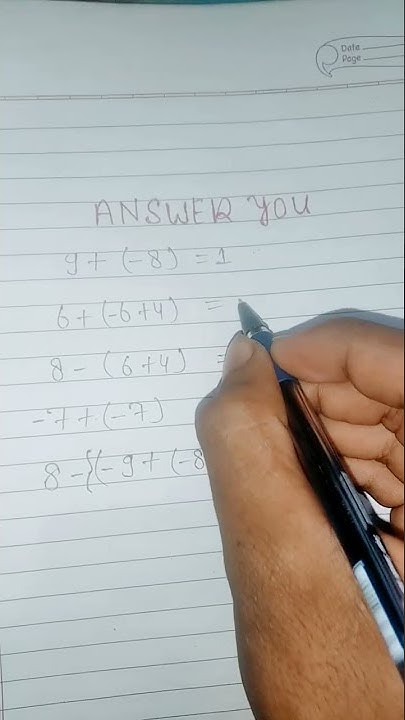 Date
Page
ANSWER YOU
9 + (-8) = 1
6 + (-6+4) =
8 - (6+4) =
-7 + (-7)
8 - {(-9 + (-8